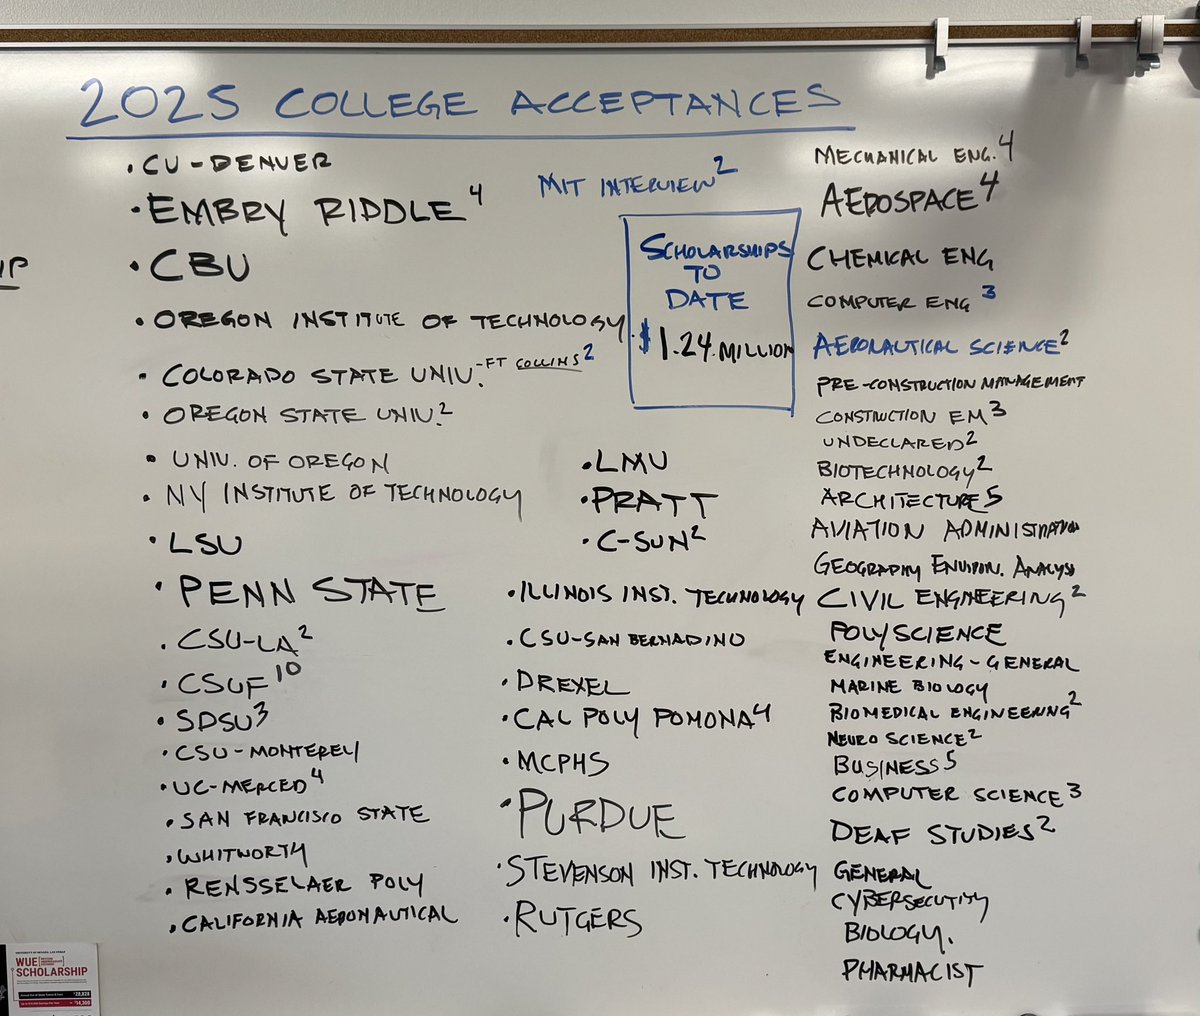 2025 COLLEGE ACCEPTANCES
• CU-DENVER
• EMBRY RIDDLE 4
• CBU
• OREGON INSTITUTE OF TECHNOLOGY
• COLORADO STATE UNIV. -FT COLLINS 2
• OREGON STATE UNIV. 2
• UNIV. OF OREGON
• NY INSTITUTE OF TECHNOLOGY
• LSU
• PENN STATE
• CSU-LA 2
• CSUF 10
• SDSU 3
• CSU-MONTEREY
• UC-MERCED 4
• SAN FRANCISCO STATE
• WHITWORTH
• RENSSELAER POLY
• CALIFORNIA AERONAUTICAL
MIT INTERVIEW 2
SCHOLARSHIPS
TO
DATE
$1.24 MILLION
• LMU
• PRATT
• C-SUN 2
• ILLINOIS INST. TECHNOLOGY
• CSU-SAN BERNADINO
• DREXEL
• CAL POLY POMONA 4
• MCPHS
• PURDUE
• STEVENSON INST. TECHNOLOGY
• RUTGERS
MECHANICAL ENG. 4
AEROSPACE 4
CHEMICAL ENG
COMPUTER ENG 3
AERONAUTICAL SCIENCE 2
PRE-CONSTRUCTION MANAGEMENT
CONSTRUCTION EM 3
UNDECLARED 2
BIOTECHNOLOGY 2
ARCHITECTURE 5
AVIATION ADMINISTRATION
GEOGRAPHY ENVIRON. ANALYSIS
CIVIL ENGINEERING 2
POLYSCIENCE
ENGINEERING-GENERAL
MARINE BIOLOGY
BIOMEDICAL ENGINEERING 2
NEURO SCIENCE 2
BUSINESS 5
COMPUTER SCIENCE 3
DEAF STUDIES 2
GENERAL
CYBERSECUTITY
BIOLOGY.
PHARMACIST
WUE
SCHOLARSHIP